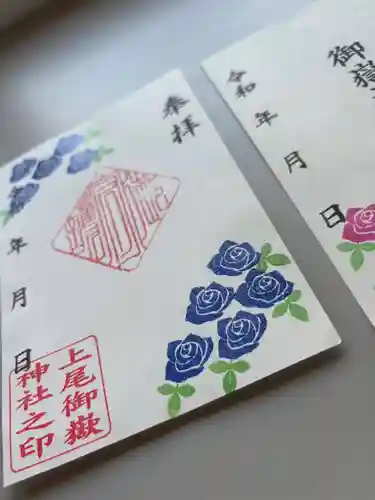 奉拝
年
月
日
上尾御嶽
神社之印
御嶽
令和
年
月
日